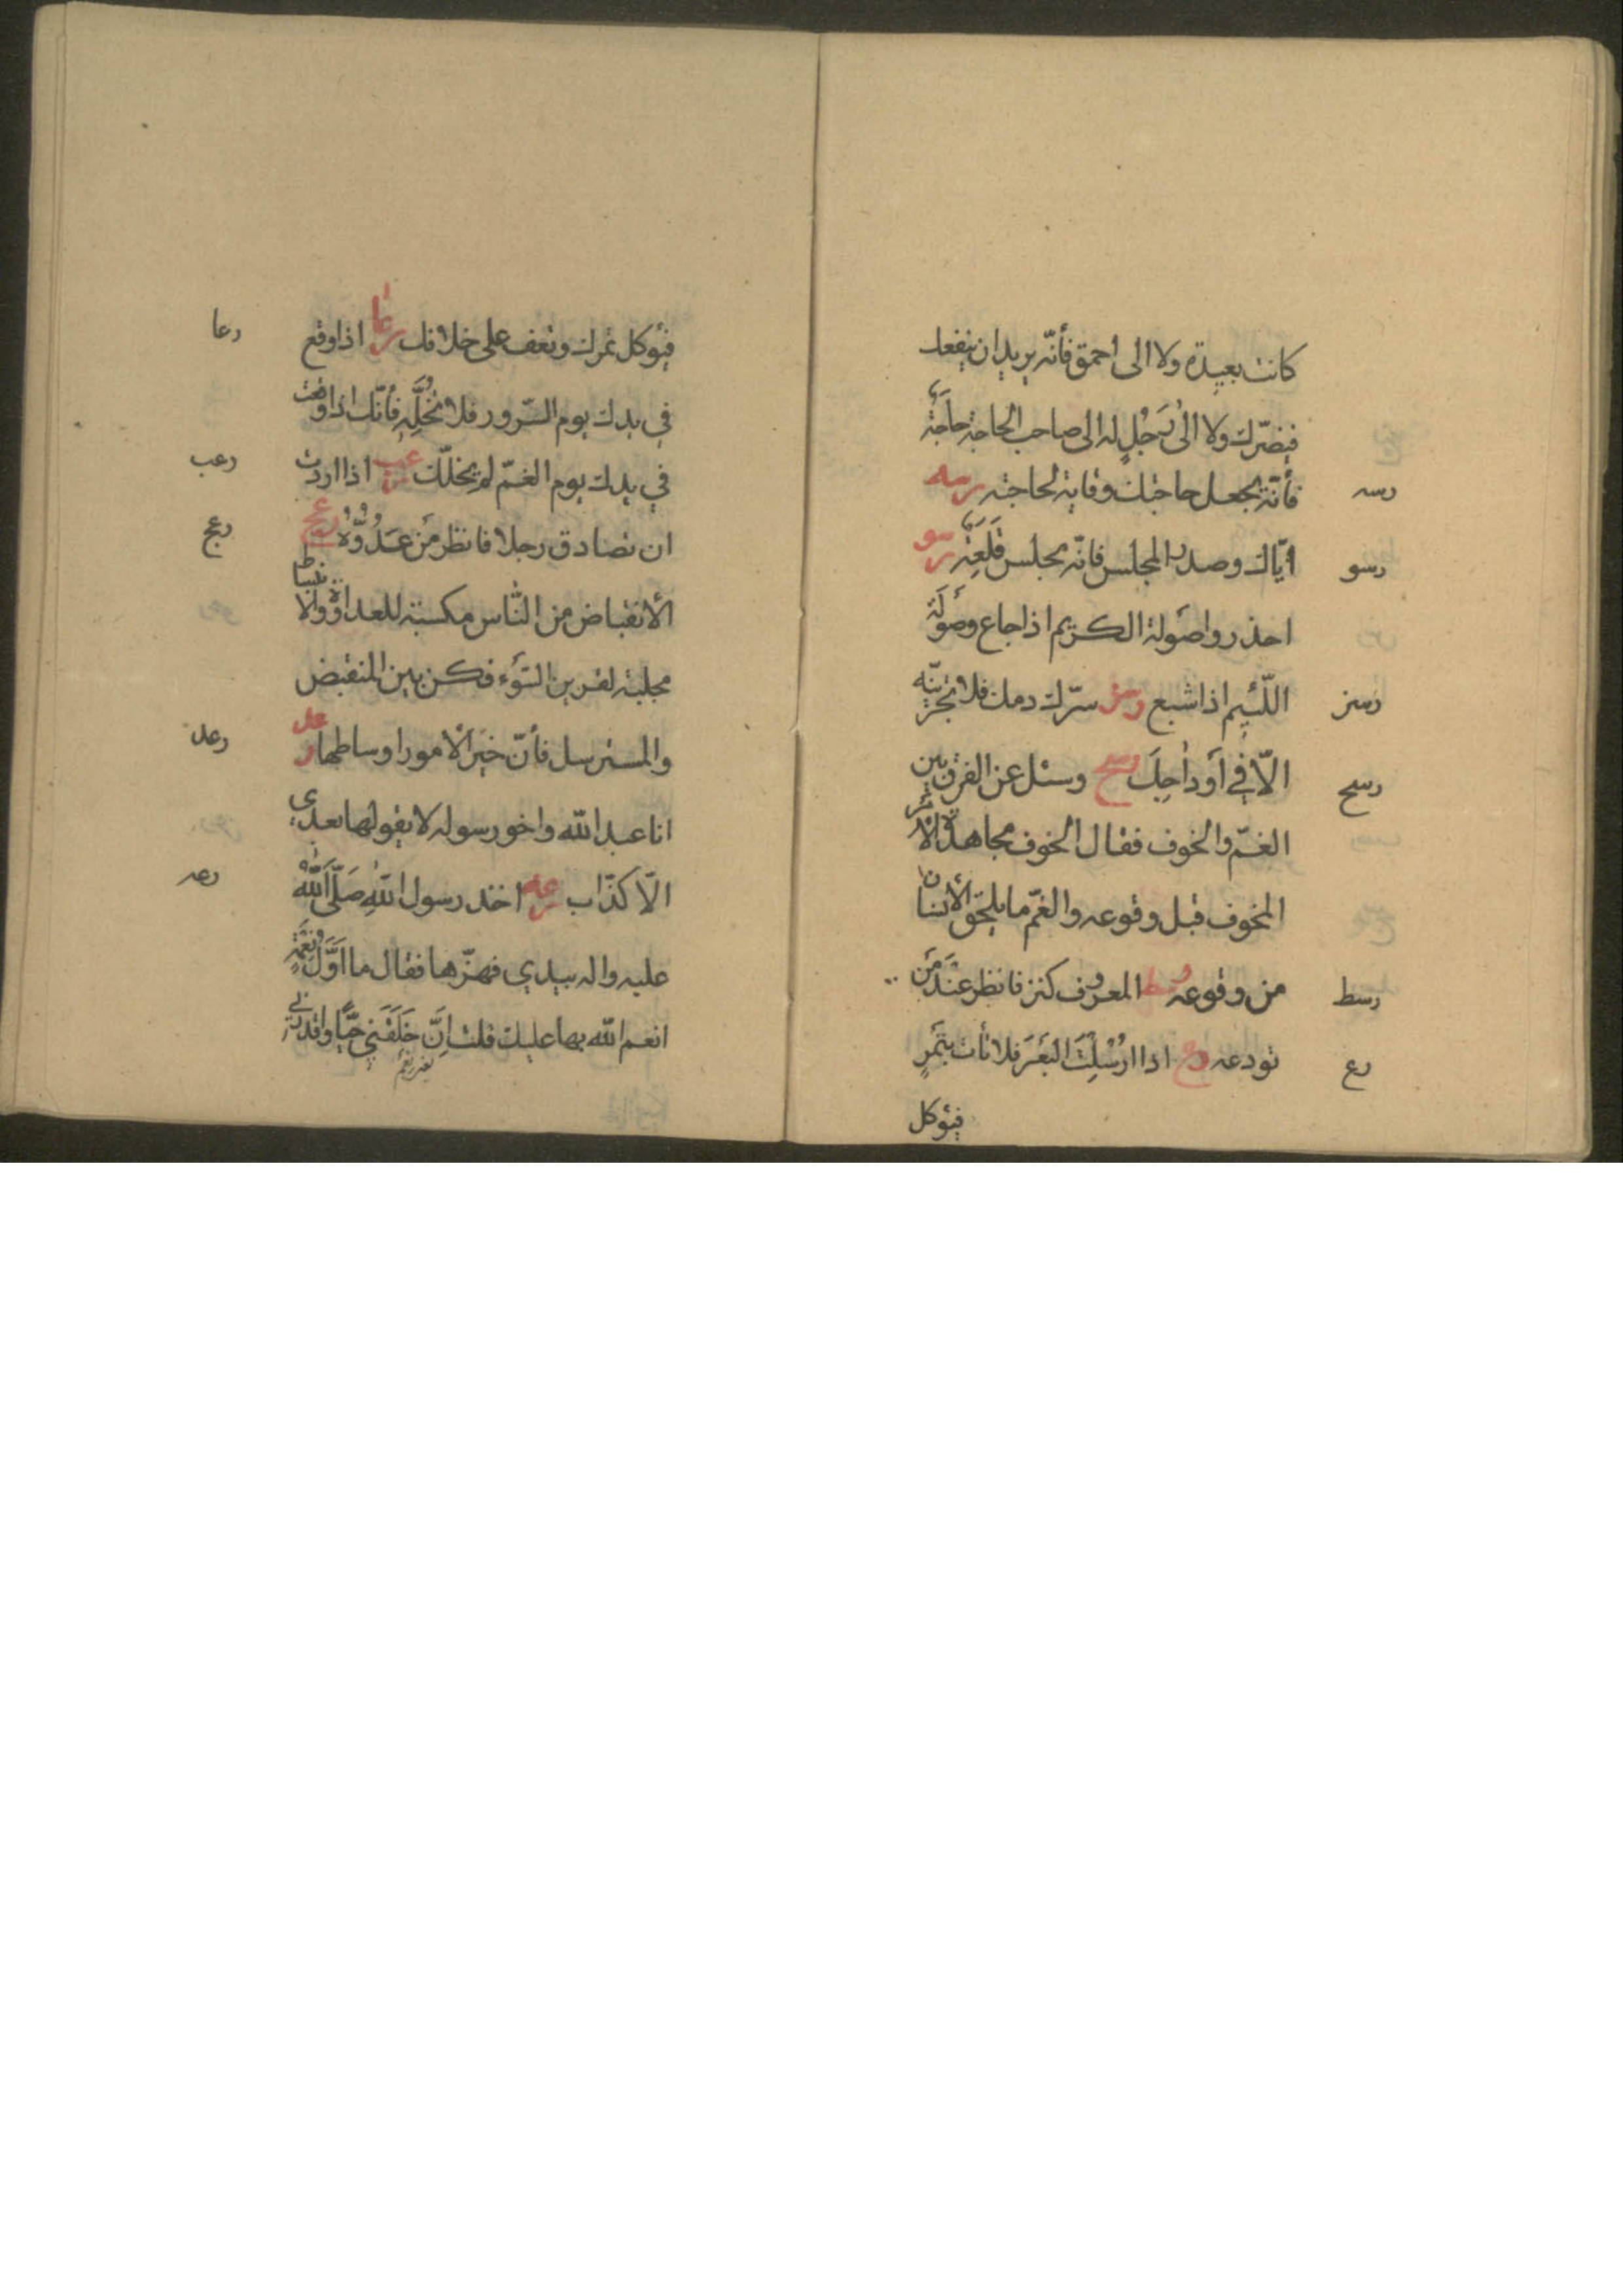 كانت بعيدة ولا الى احمق فأنّه يريد ان ينفعك
فيضرّك ولا الىٰ رَجُلٍ له الى صاحب الحاجة حاجَةٌ
رسه
فأنّه يجعل حاجتك وقاية لحاجته رسه
رسو
ايّاك وصدر المجلس فانّه مجلس قَلَعَةٍ رسو
احذروا صَولة الكريم اذا جاع وصَولَةَ
رسز
اللّئيم اذا شبع رسز سرّك دمك فلا تجرينّه
رسح
الّا في اَوداجِكَ رسح وسئل عن الفرق بين
الغمّ والخوف فقال الخوف مجاهدة الأمر
المخوف قبل وقوعه والغمّ ما يلحق الأنسان
رسط
من وقوعه رسط المعروف كنز فانظر عند مَن
رع
تودعه رع اذا ارُسْلِتَ لبَعَرَ فلا تأت بتَمَرٍ
فيؤكل
رعا
فيؤكل تمرك وتعنف على خلافك رعا اذا وقع
في يدك يوم السّرور فلا تُخَلِّهِ فأنّك اذا وقعت
رعب
في يدك يوم الغمّ لم يخلّك رعب اذا اردت
رعج
ان تصادق رجلا فانظر مَن عَدُوُّهُ رعج
الأنقباض من النّاس مكسبة للعداوة والانبساط
مجلبة لقرين السّوَء فكن بين المنقبض
رعد
والمسترسل فأنّ خَيرَ الأمور اوساطها رعد
انا عبد الله واخو رسوله لا يقولها بعدي
رعه
الّا كذّاب رعه اخذ رسول اللهِ صَلَّى اللهُ
عليه واله بيدي فهزّها فقال ما اَوَّلُ نِعْمَةٍ
انعم الله بها عليك قلت اِنَّ خَلَقَني حَيًّا واقدرني